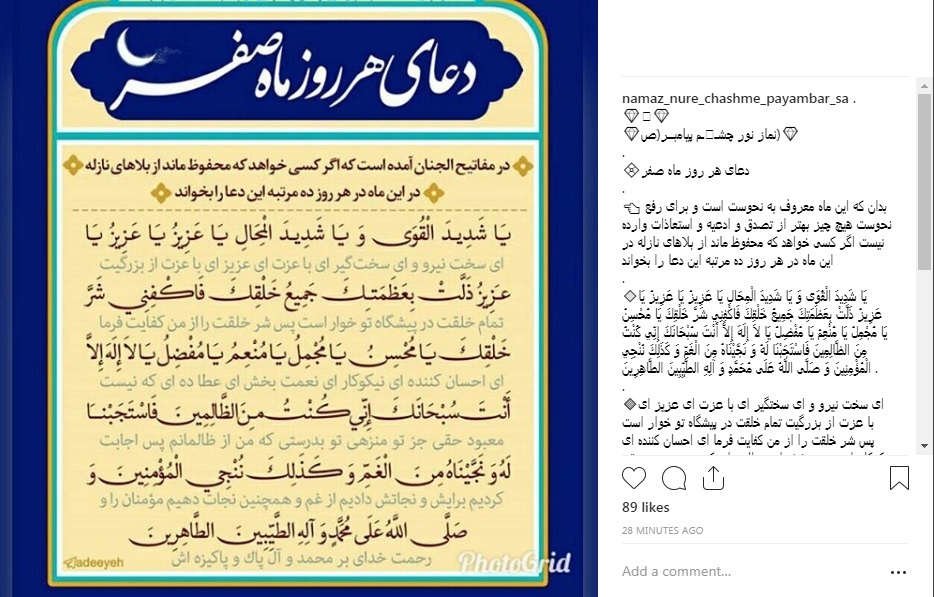 دعای هر روز ماه صفر
در مفاتیح الجنان آمده است که اگر کسی خواهد که محفوظ ماند از بلاهای نازله
در این ماه در هر روز ده مرتبه این دعا را بخواند
يَا شَدِيدَ الْقُوَى وَ يَا شَدِيدَ الْمِحَالِ يَا عَزِيزُ يَا عَزِيزُ يَا
ای سخت نیرو و ای سخت‌گیر ای با عزت ای عزیز ای با عزت از بزرگیت
عَزِيزُ ذَلَّتْ بِعَظَمَتِكَ جَمِيعُ خَلْقِكَ فَاكْفِنِي شَرَّ
تمام خلقت در پیشگاه تو خوار است پس شر خلقت را از من کفایت فرما
خَلْقِكَ يَا مُحْسِنُ يَا مُجْمِلُ يَا مُنْعِمُ يَا مُفْضِلُ يَا لاَ إِلَهَ إِلاَّ
ای احسان کننده ای نیکوکار ای نعمت بخش ای عطا ده ای که نیست
أَنْتَ سُبْحَانَكَ إِنِّي كُنْتُ مِنَ الظَّالِمِينَ فَاسْتَجَبْنَا
معبود حقی جز تو منزهی تو بدرستی که من از ظالمانم پس اجابت
لَهُ وَ نَجَّيْنَاهُ مِنَ الْغَمِّ وَ كَذَلِكَ نُنْجِي الْمُؤْمِنِينَ وَ
کردیم برایش و نجاتش دادیم از غم و همچنین نجات دهیم مؤمنان را و
صَلَّى اللَّهُ عَلَى مُحَمَّدٍ وَ آلِهِ الطَّيِّبِينَ الطَّاهِرِينَ
رحمت خدای بر محمد و آل پاک و پاکیزه اش
adeeyeh
PhotoGrid
namaz_nure_chashme_payambar_sa .
💎 💎
💎نماز نور چشم پیامبر(ص)💎
.
💠 دعای هر روز ماه صفر
.
👈 بدان که این ماه معروف به نحوست است و برای رفع
نحوست هیچ چیز بهتر از تصدق و ادعیه و استعاذات وارده
نیست اگر کسی خواهد که محفوظ ماند از بلاهای نازله در
این ماه در هر روز ده مرتبه این دعا را بخواند
.
🔷يَا شَدِيدَ الْقُوَى وَ يَا شَدِيدَ الْمِحَالِ يَا عَزِيزُ يَا عَزِيزُ يَا
عَزِيزُ ذَلَّتْ بِعَظَمَتِكَ جَمِيعُ خَلْقِكَ فَاكْفِنِي شَرَّ خَلْقِكَ يَا مُحْسِنُ
يَا مُجْمِلُ يَا مُنْعِمُ يَا مُفْضِلُ يَا لاَ إِلَهَ إِلاَّ أَنْتَ سُبْحَانَكَ إِنِّي كُنْتُ
مِنَ الظَّالِمِينَ فَاسْتَجَبْنَا لَهُ وَ نَجَّيْنَاهُ مِنَ الْغَمِّ وَ كَذَلِكَ نُنْجِي
الْمُؤْمِنِينَ وَ صَلَّى اللَّهُ عَلَى مُحَمَّدٍ وَ آلِهِ الطَّيِّبِينَ الطَّاهِرِينَ .
.
🔶ای سخت نیرو و ای سختگیر ای با عزت ای عزیز ای
با عزت از بزرگیت تمام خلقت در پیشگاه تو خوار است
پس شر خلقت را از من کفایت فرما ای احسان کننده ای
89 likes
28 MINUTES AGO
Add a comment...